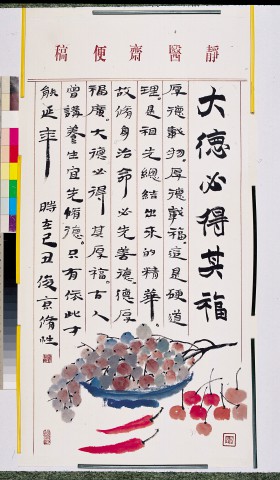 靜醫齋便稿
大德必得其福
厚德載物。厚德載福。這是硬道
理。是祖先總結出來的精華。
故修身治命必先善德。德厚
福廣。大德必得其厚福。古人
曾議養生宜先修德。只有依此才
能延年 時在己丑 俊京脩性